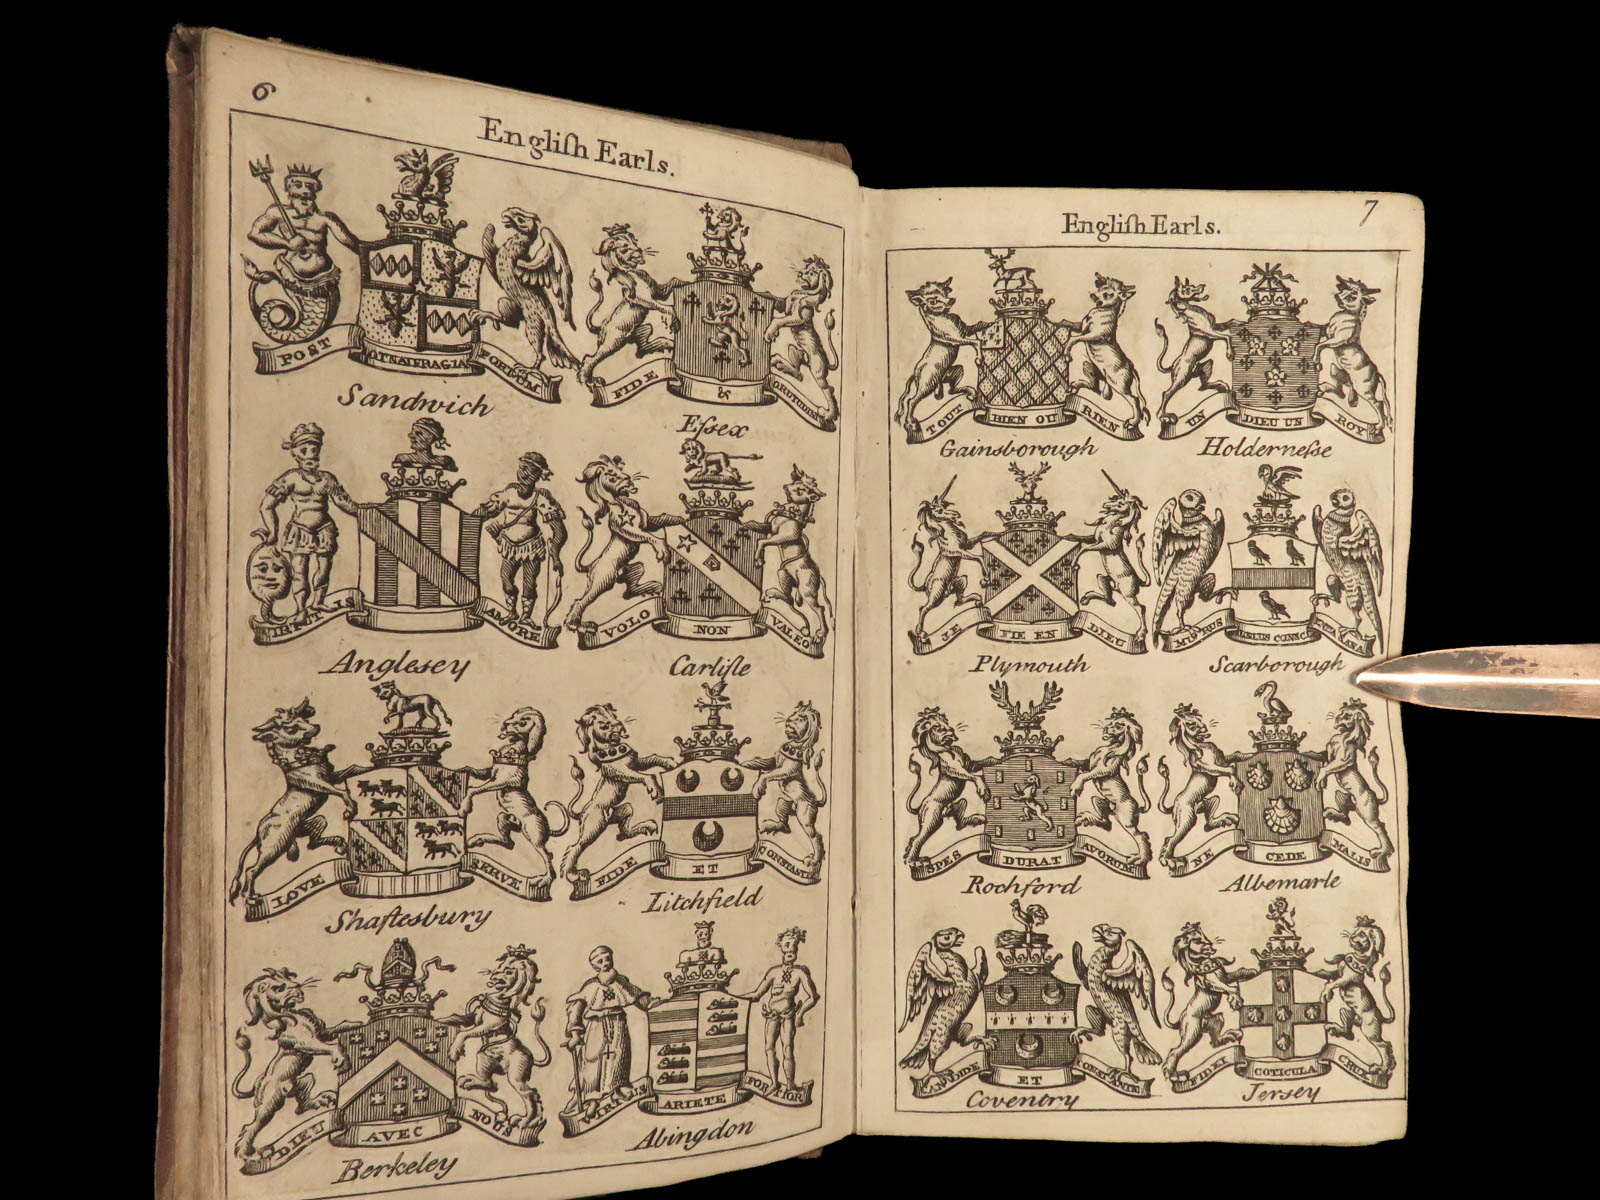 6
Engliſh Earls.
POST NAUFRAGIA PORTUM
Sandwich
FIDE &
Eſsex
VIRTUTIS AMORE
Anglesey
VOLO NON VALEO
Carliſle
LOVE SERVE
Shaftesbury
FIDE ET CONSTANTI
Litchfield
DIEU AVEC NOUS
Berkeley
VIRTUS ARIETE FORTIOR
Abingdon
7
Engliſh Earls.
TOUT BIEN OU RIEN
Gainsborough
UN DIEU UN ROY
Holderneſse
JE FIE EN DIEU
Plymouth
MURUS
Scarborough
SPES DURAT AVORUM
Rochford
NE CEDE MALIS
Albemarle
CANDIDE ET CONSTANTE
Coventry
FIDEI COTICULA CRUX
Jersey